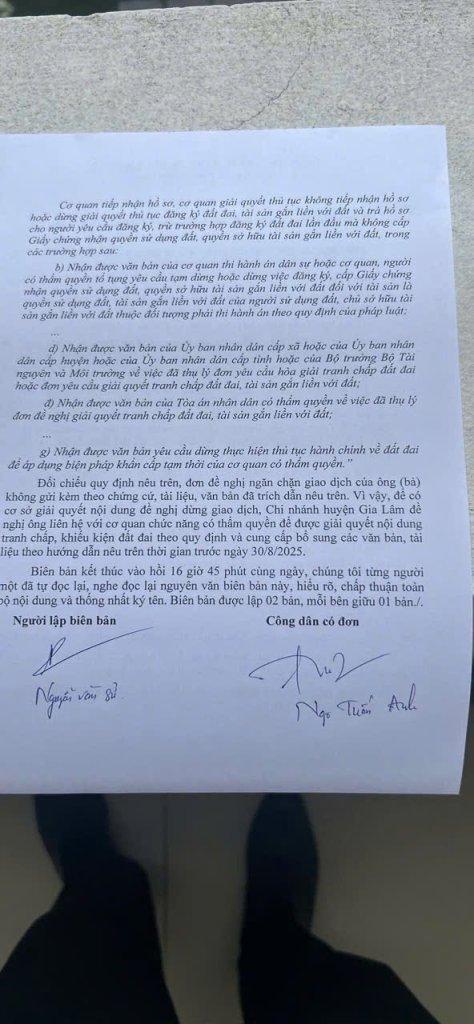 Cơ quan tiếp nhận hồ sơ, cơ quan giải quyết thủ tục không tiếp nhận hồ sơ
hoặc dừng giải quyết thủ tục đăng ký đất đai, tài sản gắn liền với đất và trả hồ sơ
cho người yêu cầu đăng ký, trừ trường hợp đăng ký đất đai lần đầu mà không cấp
Giấy chứng nhận quyền sử dụng đất, quyền sở hữu tài sản gắn liền với đất, trong
các trường hợp sau:
b) Nhận được văn bản của cơ quan thi hành án dân sự hoặc cơ quan, người
có thẩm quyền tố tụng yêu cầu tạm dừng hoặc dừng việc đăng ký, cấp Giấy chứng
nhận quyền sử dụng đất, quyền sở hữu tài sản gắn liền với đất đối với tài sản là
quyền sử dụng đất, tài sản gắn liền với đất của người sử dụng đất, chủ sở hữu tài
sản gắn liền với đất thuộc đối tượng phải thi hành án theo quy định của pháp luật;
...
d) Nhận được văn bản của Ủy ban nhân dân cấp xã hoặc của Ủy ban nhân
dân cấp huyện hoặc của Ủy ban nhân dân cấp tỉnh hoặc của Bộ trưởng Bộ Tài
nguyên và Môi trường về việc đã thụ lý đơn yêu cầu hòa giải tranh chấp đất đai
hoặc đơn yêu cầu giải quyết tranh chấp đất đai, tài sản gắn liền với đất;
đ) Nhận được văn bản của Tòa án nhân dân có thẩm quyền về việc đã thụ lý
đơn đề nghị giải quyết tranh chấp đất đai, tài sản gắn liền với đất;
...
g) Nhận được văn bản yêu cầu dừng thực hiện thủ tục hành chính về đất đai
để áp dụng biện pháp khẩn cấp tạm thời của cơ quan có thẩm quyền."
Đối chiếu quy định nêu trên, đơn đề nghị ngăn chặn giao dịch của ông (bà)
không gửi kèm theo chứng cứ, tài liệu, văn bản đã trích dẫn nêu trên. Vì vậy, để có
cơ sở giải quyết nội dung đề nghị dừng giao dịch, Chi nhánh huyện Gia Lâm đề
nghị ông liên hệ với cơ quan chức năng có thẩm quyền để được giải quyết nội dung
tranh chấp, khiếu kiện đất đai theo quy định và cung cấp bổ sung các văn bản, tài
liệu theo hướng dẫn nêu trên thời gian trước ngày 30/8/2025.
Biên bản kết thúc vào hồi 16 giờ 45 phút cùng ngày, chúng tôi từng người
một đã tự đọc lại, nghe đọc lại nguyên văn biên bản này, hiểu rõ, chấp thuận toàn
bộ nội dung và thống nhất ký tên. Biên bản được lập 02 bản, mỗi bên giữ 01 bản./.
Người lập biên bản
Công dân có đơn
Nguyễn Văn Sử
Ngo Tuấn Anh